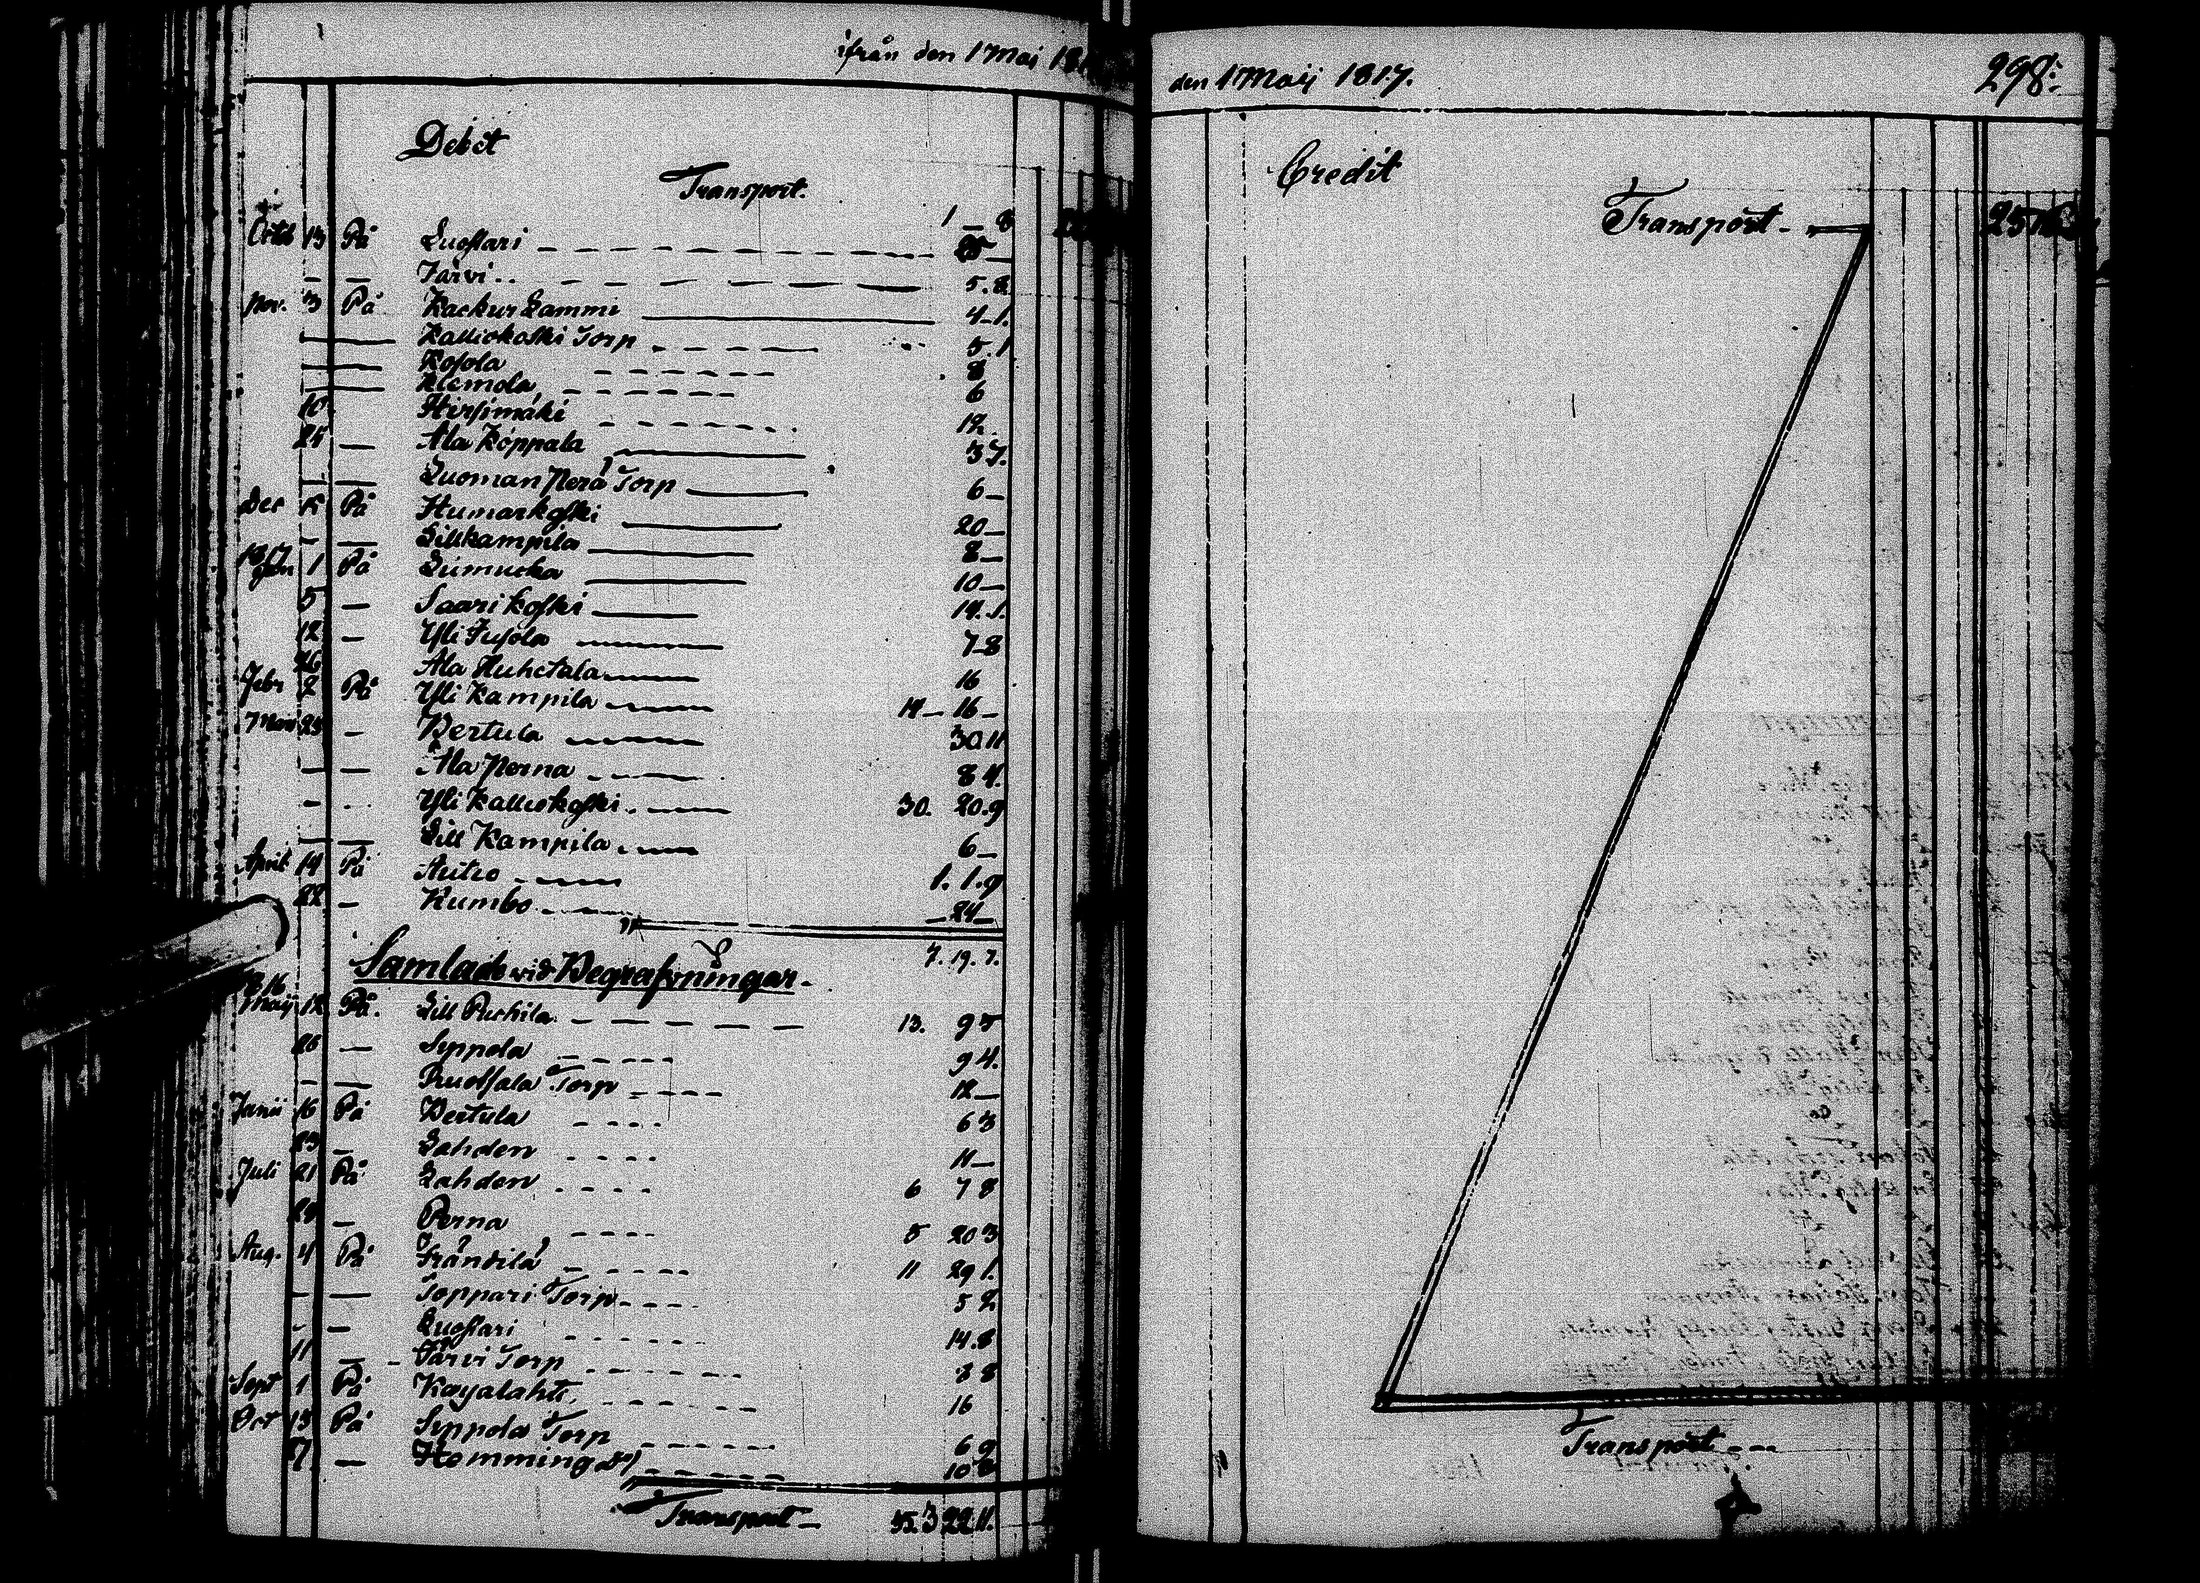 ifrån den 1 Maj 18
Debet
Transport.
1 _ 8
Octob 13 På Luoslari 25 _
_ _ Järvi 5. 8
Nov. 3 På Kackur Lammi 4 _ 1.
Kalliokoski Torp 5. 1
Kosola 8
Klemola 6
10 Hirsimäki 12.
25 _ Ala Köppala 3 7.
_ _ Luoman Perä Torp 6 _
Dec 15 På Humarkoski 20 _
_ _ Lillkampila 8 _
1817 Jan 1 På Liimucka 10 _
5 _ Saarikoski 14. 1.
12 _ Yli Jusola 7 _ 8
26 Ala Huhctala 16
Febr 2 På Yli Kampila 14 _ 16 _
Mars 23 _ Bertula 30 11
_ _ Ala Perna 8 4.
_ _ Yli Kalliokoski 30. 20. 9
_ _ Lill Kampila 6 _
April 14 På Autio 1. 1. 9
22 _ Kumbo _ 24 _
7. 19. 7.
Samlade vid Begrafvningar.
1816
Maij 12 På Lill Puchila 13. 9 5
26 _ Seppola 9 4.
_ _ Ruotsala Torp 12 _
Junii 16 På Bertula 6 3
23 _ Lahden 11 _
Juli 21 På Lahden 6 7 8
28 _ Perna 5 20 3
Aug. 4 På Frändilä 11 29 1.
_ _ Toppari Torp 5 2
_ _ Luoslari 14. 8
11 _ Järvi Torp 8 8
Sept 1 På Koyalahti 16
Oct 13 På Seppola Torp 6 9
_ Hemming 10 8
Transport _ 55. 3 22 11.
den 1 Maij 1817.
298:
Credit
Transport
Transport